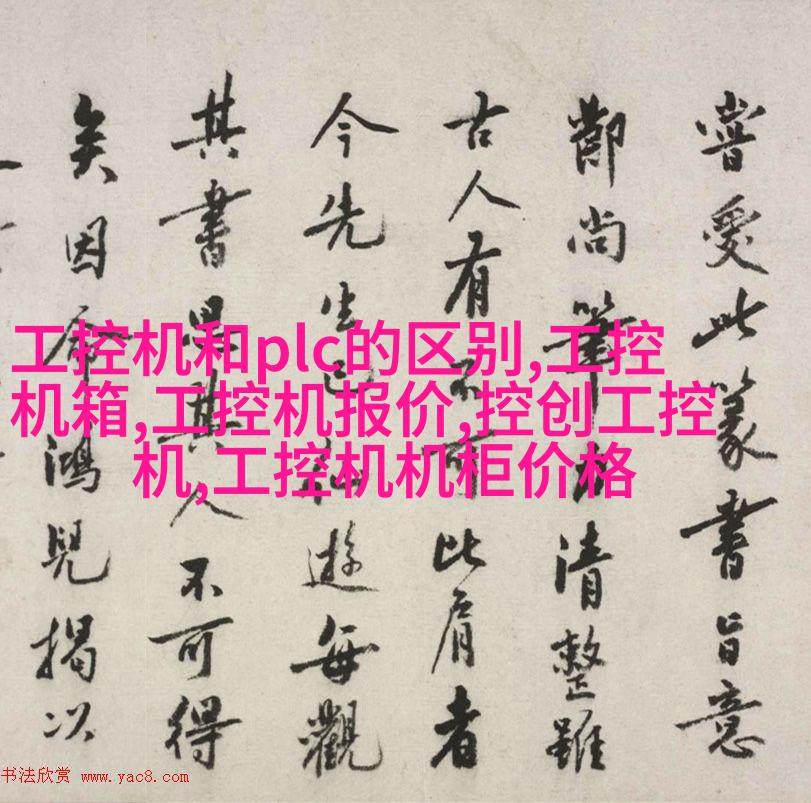 工控机和plc的区别,工控
机箱,工控机报价,控创工控
机,工控机机柜价格
嘗受此篆書旨意
尚筆清整雖
古人有不可比肩者
今先生已遊每觀
其書其人不可得
矣因命鴻兒揭以
书法欣赏 www.yac8.com